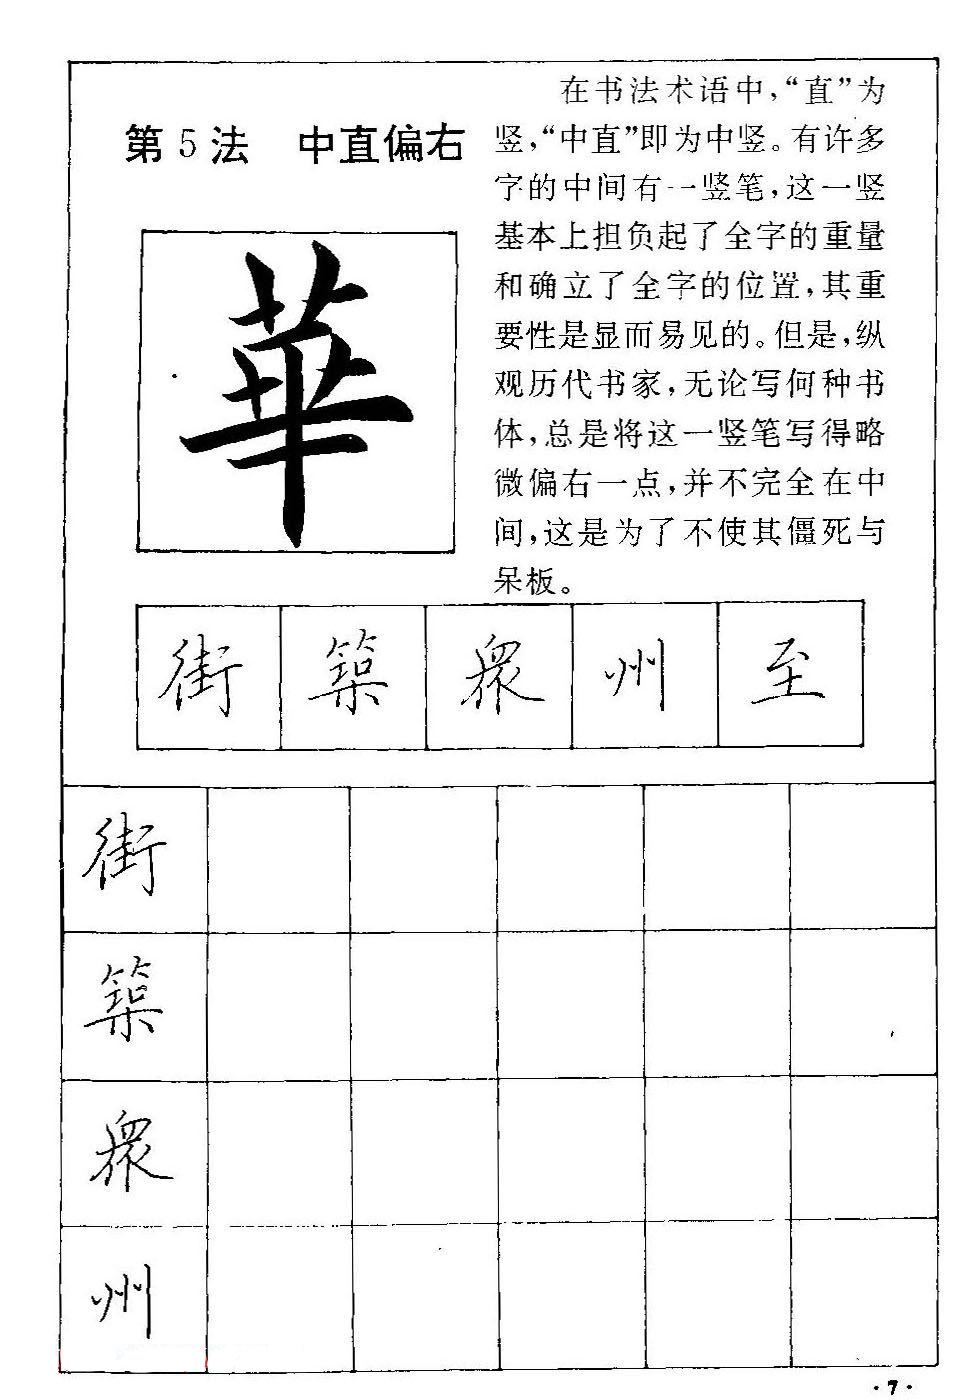 第5法 中直偏右
在书法术语中，“直”为
竖，“中直”即为中竖。有许多
字的中间有一竖笔，这一竖
基本上担负起了全字的重量
和确立了全字的位置，其重
要性是显而易见的。但是，纵
观历代书家，无论写何种书
体，总是将这一竖笔写得略
微偏右一点，并不完全在中
间，这是为了不使其僵死与
呆板。
華
街 築 眾 州 至
街
築
眾
州
·7·